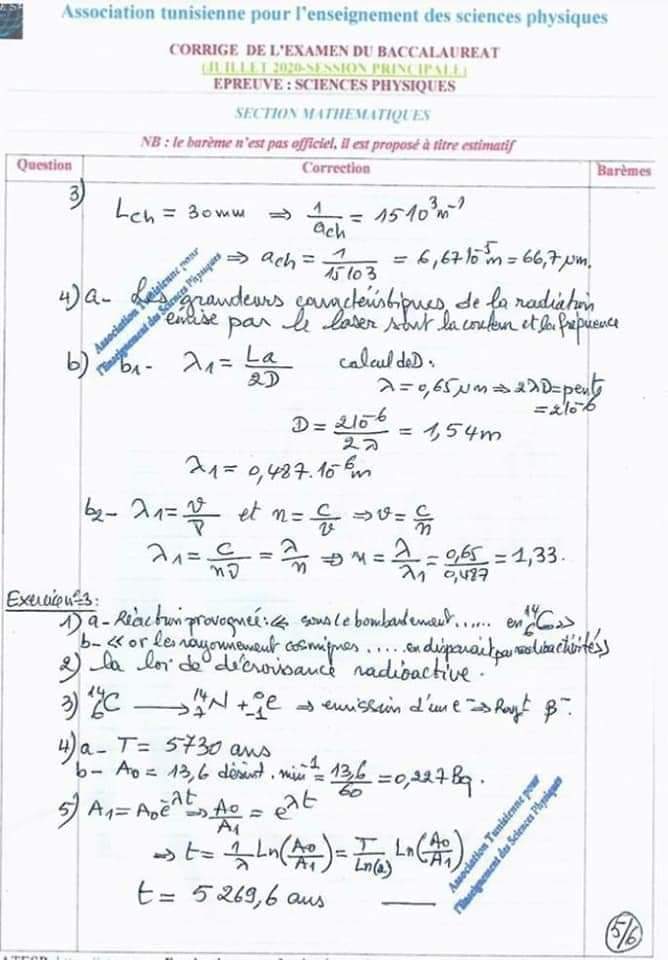 Association tunisienne pour l'enseignement des sciences physiques
CORRIGE DE L'EXAMEN DU BACCALAUREAT
(JUILLET 2020-SESSION PRINCIPALE)
EPREUVE : SCIENCES PHYSIQUES
SECTION MATHEMATIQUES
NB : le barème n'est pas officiel, il est proposé à titre estimatif
Question Correction Barèmes
3) Lch = 30mm ⇒ 1/ach = 15 10³m⁻¹
⇒ ach = 1/(15 10 3) = 6,67 10⁻⁵m = 66,7 µm.
Association Tunisienne pour
l'Enseignement des Sciences Physiques
4) a- Les grandeurs caractéristiques de la radiation
émise par le laser sont la couleur et la fréquence
b) b1- λ1 = La/2D calcul de D:
λ = 0,65 µm ⇒ 2λD = pente
= 2 10⁻⁶
D = 2 10⁻⁶/2λ = 1,54 m
λ1 = 0,487.10⁻⁶m
b2- λ1 = v/ν et n = c/v ⇒ v = c/n
λ1 = c/nν = λ/n ⇒ n = λ/λ1 = 0,65/0,487 = 1,33.
Exercice n°3:
1) a- Réaction provoquée: « sous le bombardement...... en ¹⁴₆C »
b- « or les rayonnement cosmiques ..... en disparait par radioactivités »
2) la loi de décroissance radioactive.
3) ¹⁴₆C → ¹⁴₇N + ⁰₋₁e ⇒ emission d'un e⁻ ⇒ Rayt β⁻.
4) a- T = 5730 ans
b- A0 = 13,6 désint. min⁻¹ = 13,6/60 = 0,227 Bq.
5) A1 = A0e⁻λt ⇒ A0/A1 = eλt
⇒ t = 1/λ Ln(A0/A1) = T/Ln(2) Ln(A0/A1)
t = 5 269,6 ans
Association Tunisienne pour
l'Enseignement des Sciences Physiques
5/6